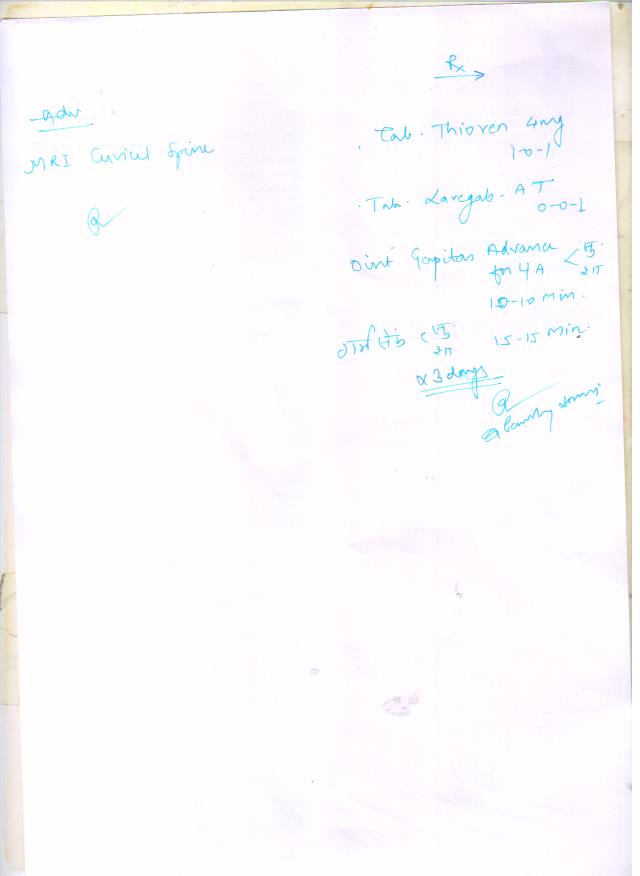 Adv
MRI Cervical Spine
Rx
Tab. Thioren 4mg
1-0-1
Tab. Laregab-AT
0-0-1
Oint Gapitas Advance
for L/A
10-10 Min.
15-15 Min.
x 3 days